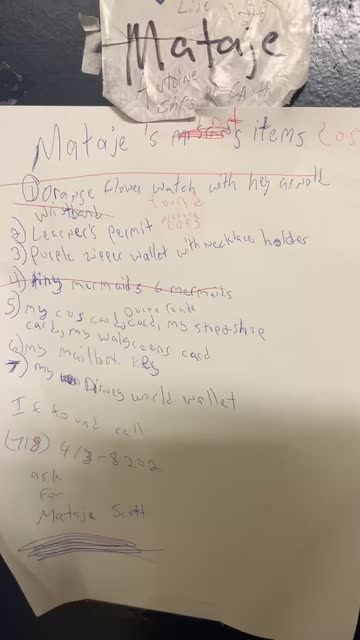 Live
Mataje
Mataje's items Los
1) Orange flower watch with key
wristband found
2) Learner's permit cops
3) Purple zipper wallet with necklace holder
4) tiny mermaids 6 mermaids
5) my cvs card,
card, card, my stop+shop
card, my walgreens card
6) my mailbox key
7) my Disney world wallet
If found call
(718) 413-8202
ask
for
Mataje Scott